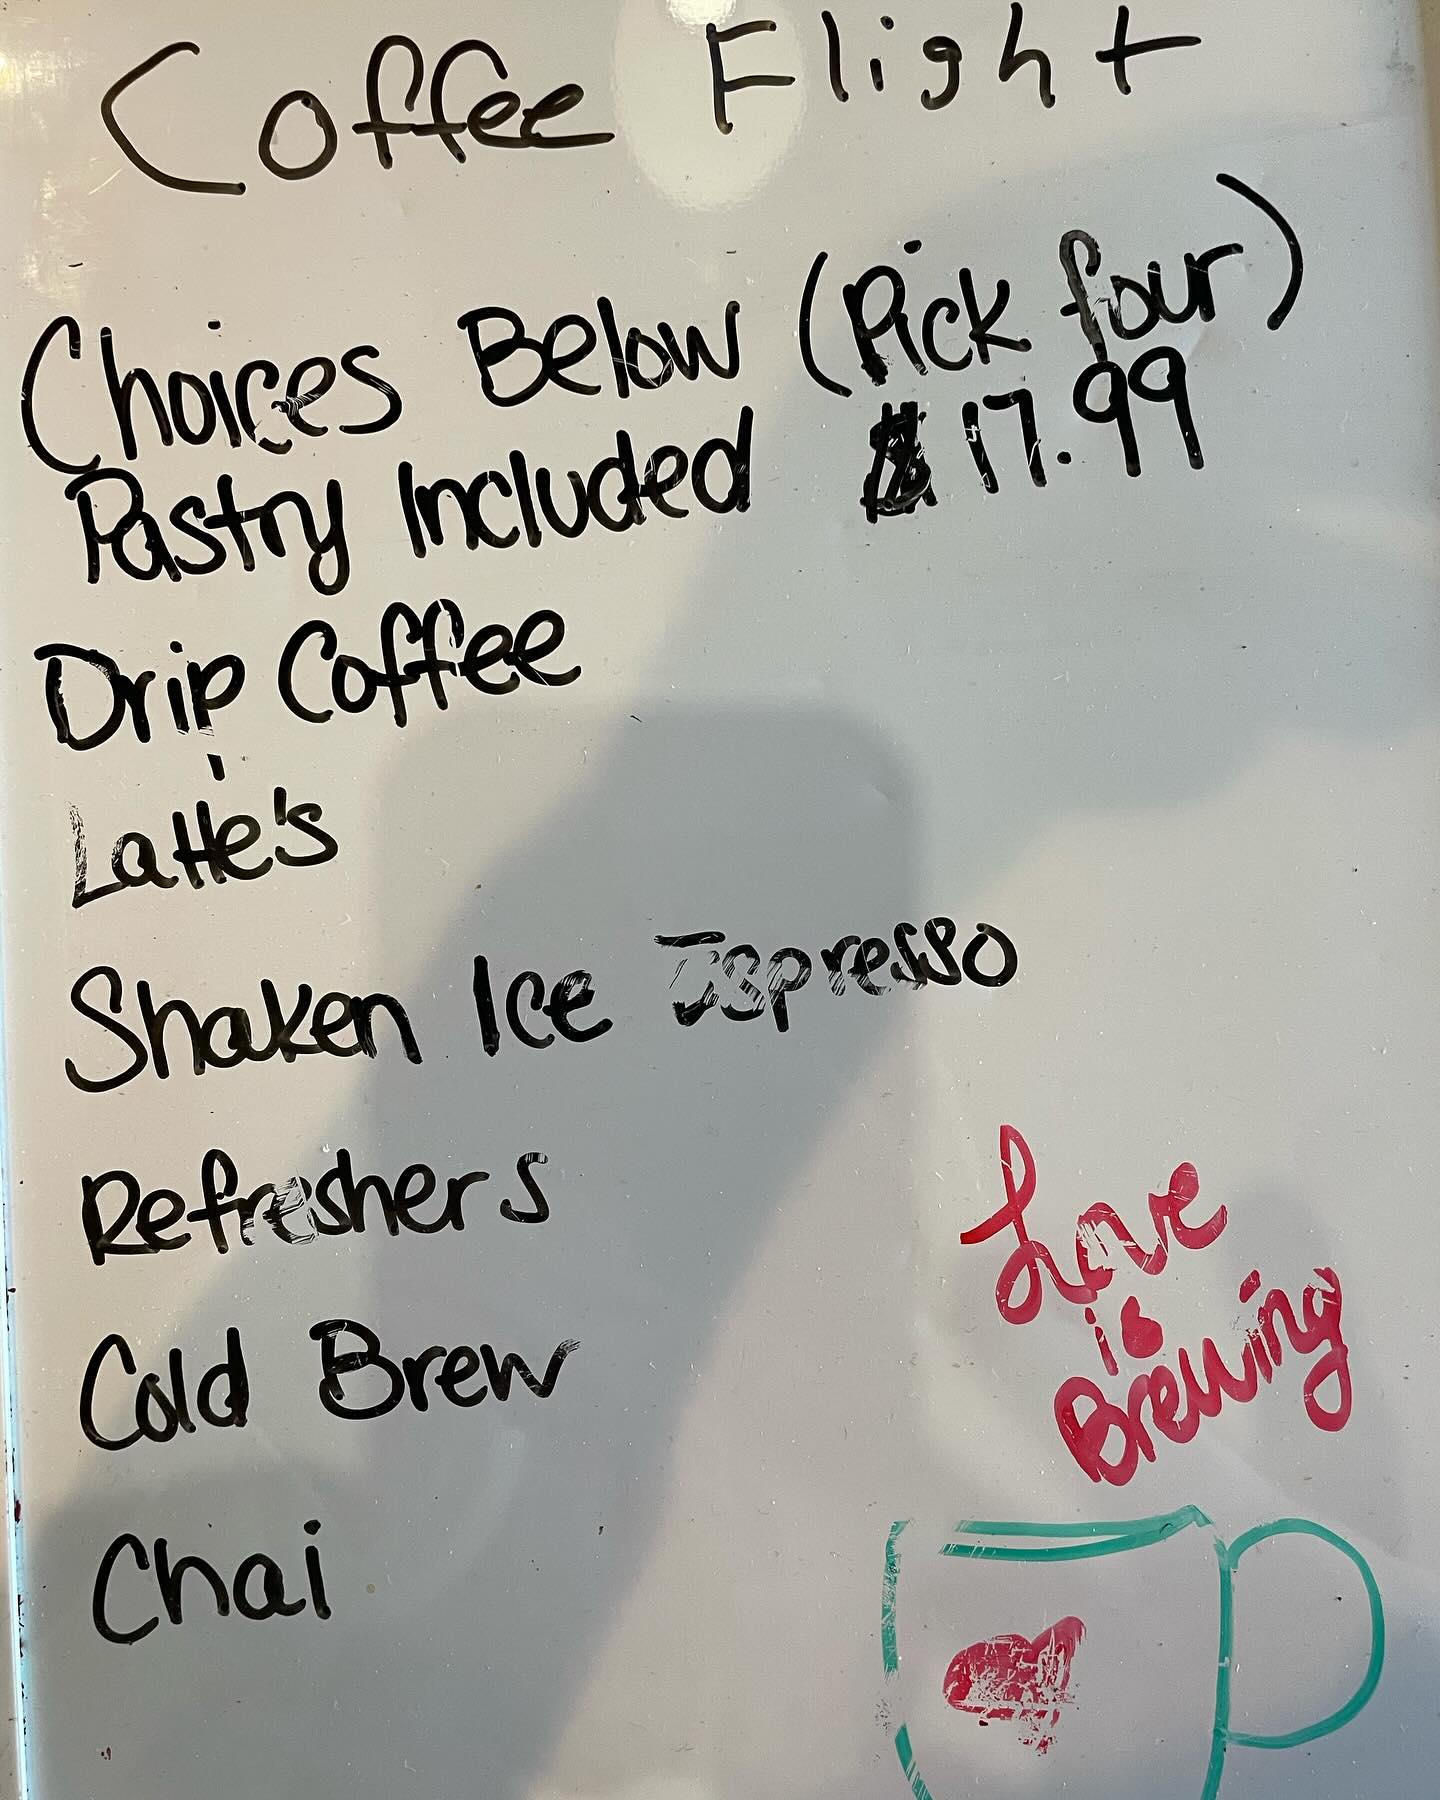 Coffee Flight
Choices Below (Pick four)
Pastry Included $17.99
Drip Coffee
Latte's
Shaken Ice Espresso
Refreshers
Cold Brew
Chai
Love
is
Brewing